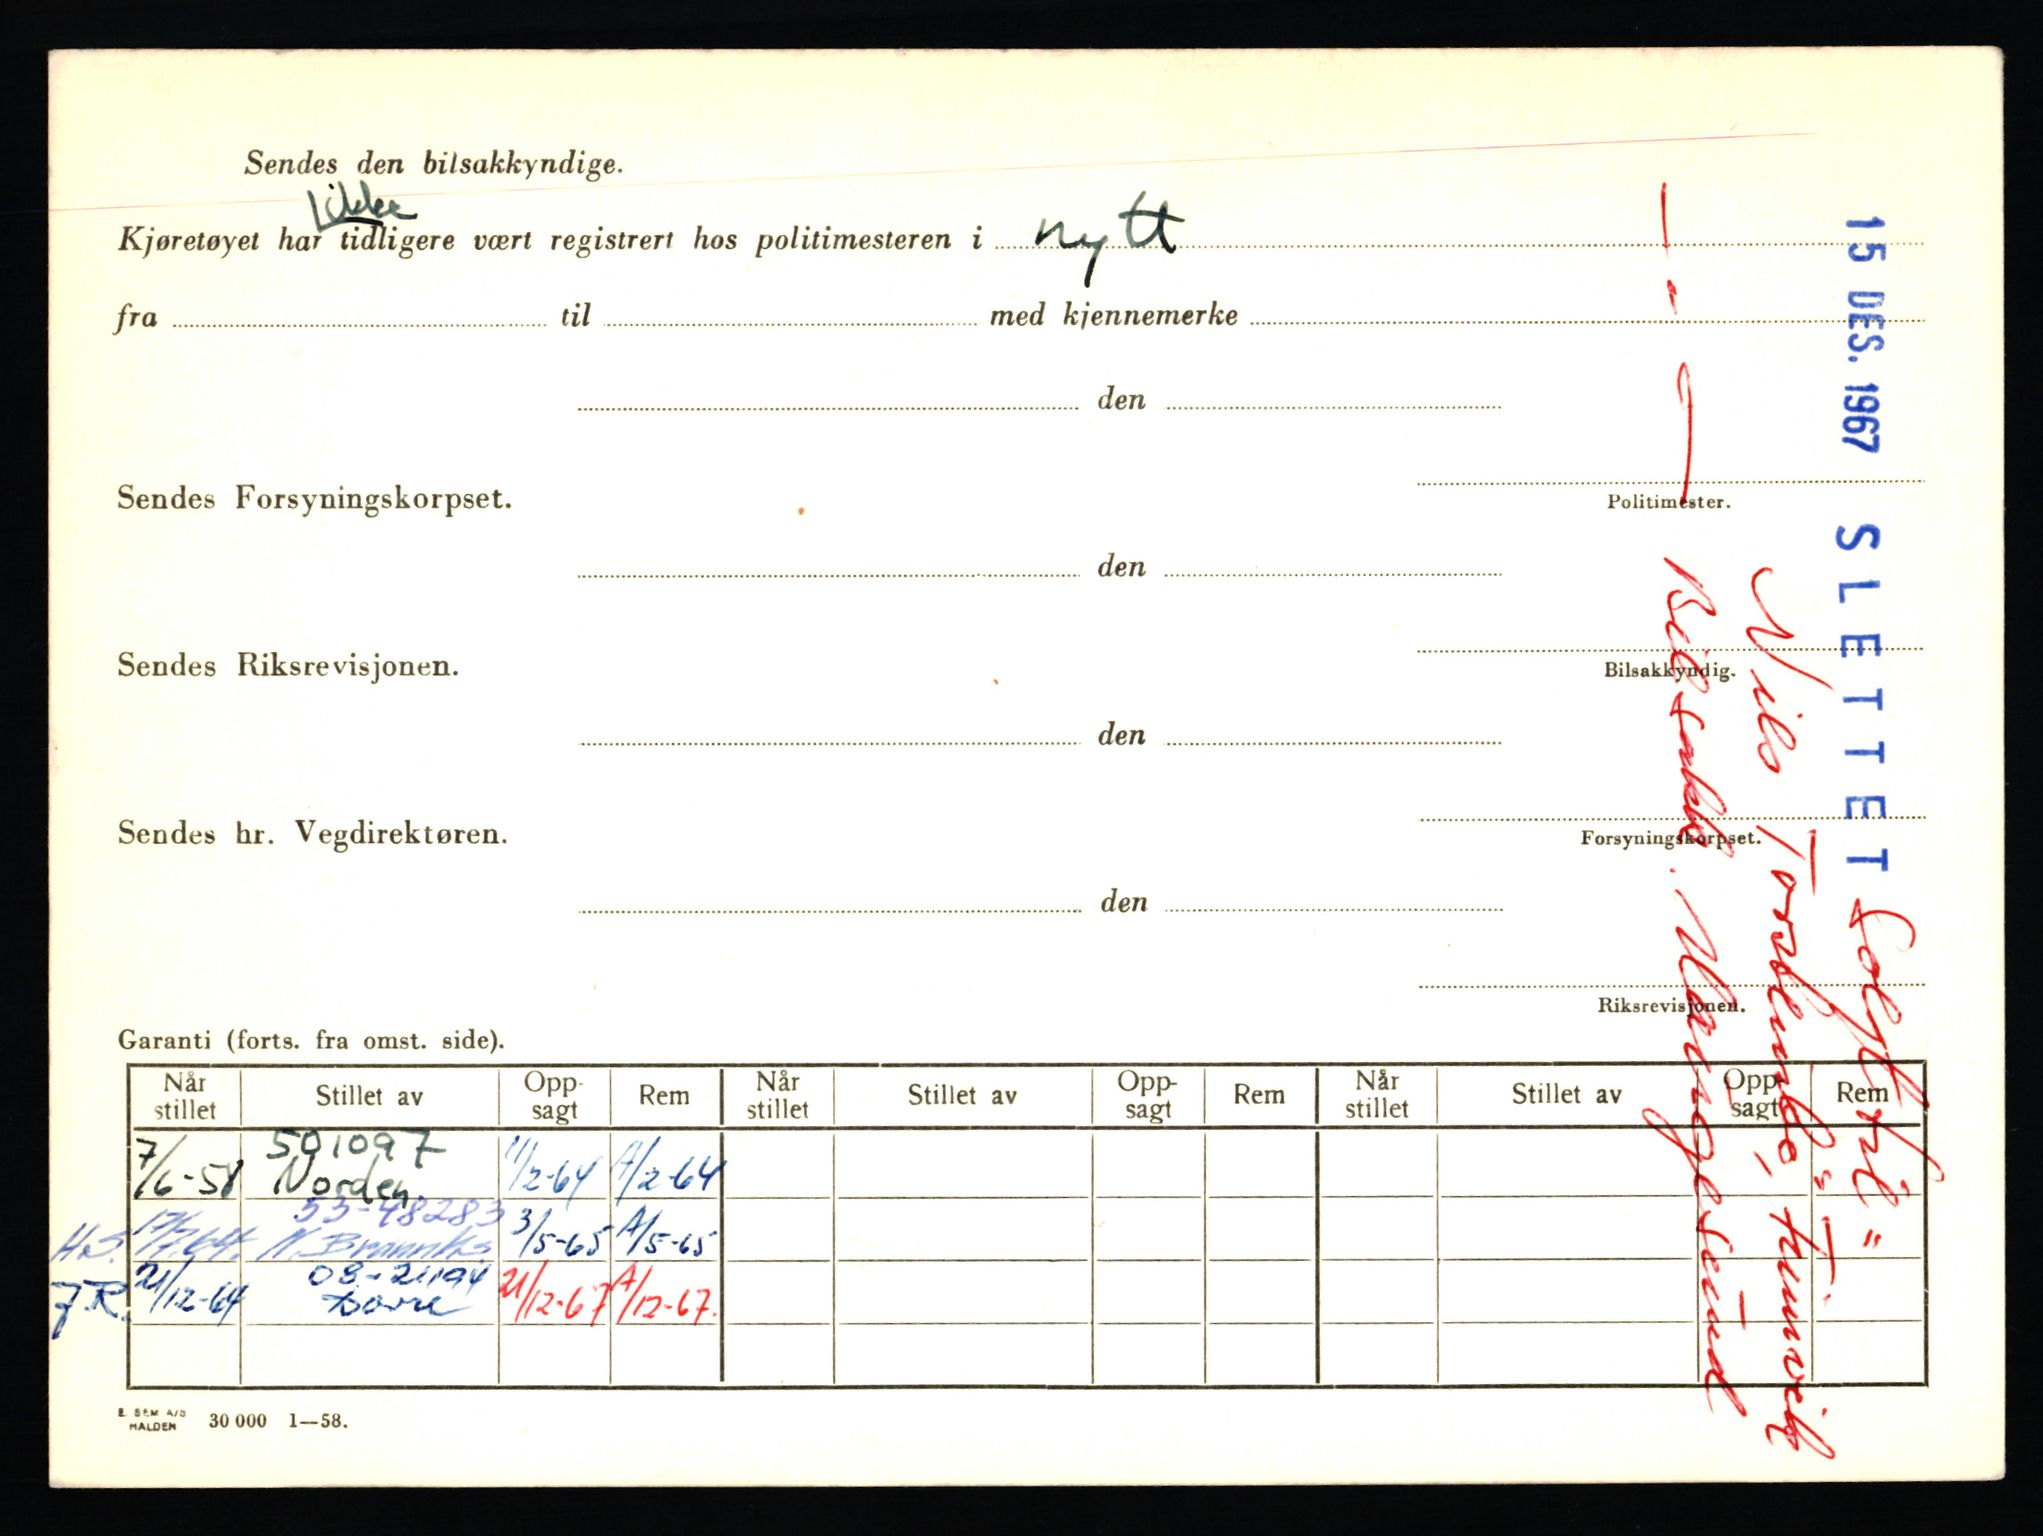 Sendes den bilsakkyndige.
ikke
Kjøretøyet har tidligere vært registrert hos politimesteren i nytt
fra til med kjennemerke
den
Politimester.
Sendes Forsyningskorpset.
den
Bilsakkyndig.
Sendes Riksrevisjonen.
den
Forsyningskorpset.
Sendes hr. Vegdirektøren.
den
Riksrevisjonen.
15 DES. 1967 SLETTET
Solgt til"
Nils
Bilsakk.
Garanti (forts. fra omst. side).
Når stillet Stillet av Opp-sagt Rem Når stillet Stillet av Opp-sagt Rem Når stillet Stillet av Opp-sagt Rem
7/6-58 501097 Norden 11/2-64 A/2-64
H.S. 53-48283 3/5-65 A/5-65
F.R. 21/12-64 08-21194 Dovre 21/12-67 A/12-67.
E. SEM A/S
HALDEN 30 000 1—58.